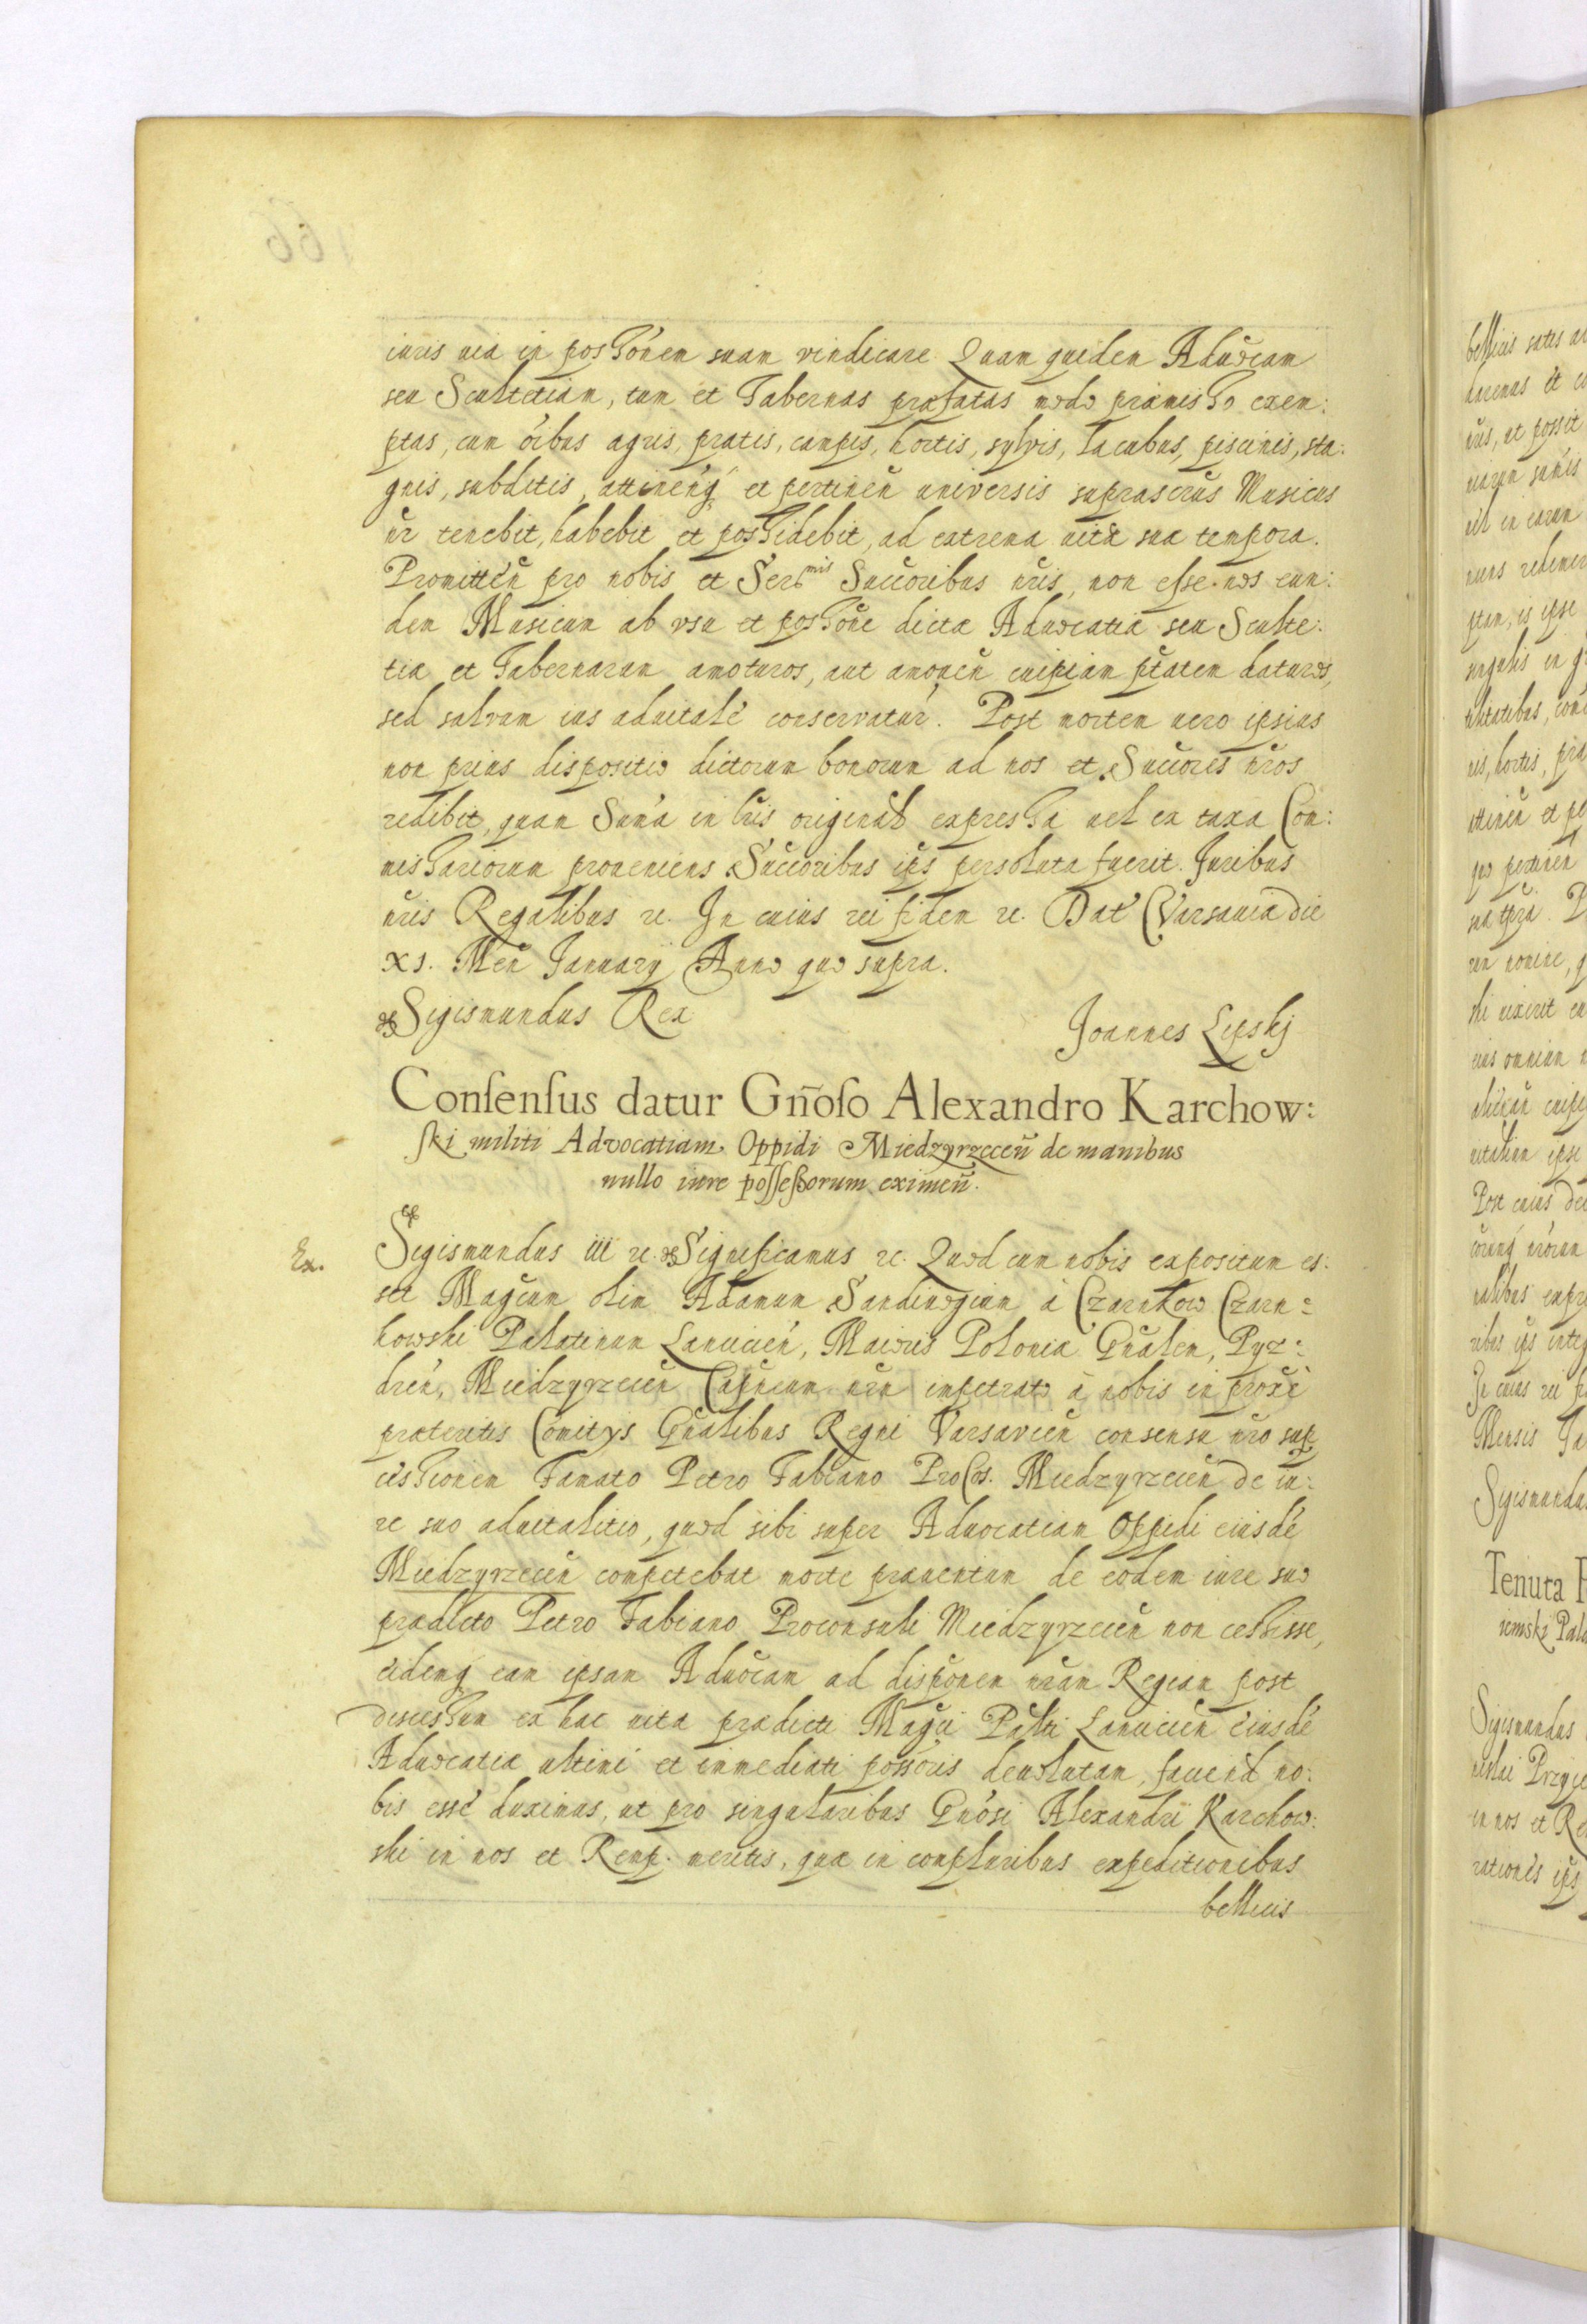 iuris via in poss̃onem suam vindicare Quam quidem Aduoc̃am
seu Scultetiam, tum et Tabernas præfatas modo præmisso exem:
ptas, cum o͠ibus agris, pratis, campis, hortis, sylvis, lacubus, piscinis, sta:
gnis, subditis, attineñ q́ et pertineñ universis suprascr̃us Musicus
nr̃ tenebit, habebit et possidebit, ad extrema vitæ suæ tempora.
Promitteñ pro nobis et Serͫⁱˢ Succ̃oribus nr̃is, non esse nos eun:
dem Musicum ab vsu et poss̃one dictæ Aduocatiæ seu Sculte:
tiæ et Tabernarum amoturos, aut amoueñ cuipiam pt̃atem daturos,
sed salvum ius aduitalẽ conservatur̃. Post mortem uero ipsius
non prius dispositio dictorum bonorum ad nos et Succ̃ores nr̃os
redibit, quam Sum̃a in lr̃is original̃ expressa uel ex taxa Com:
missariorum proueniens Succ̃oribus ip̃s persoluta fuerit. Iuribus
nr̃is Regalibus &c. In cuius rei fidem &c. Dat̃ Varsauiæ die
XI. Meñ Ianuarij Anno quo supra.
Sigismundus Rex
Joannes Lipskj
Consensus datur Gñoso Alexandro Karchow:
ski militi Advocatiam Oppidi Miedzyrzeceñ de manibus
nullo iure possessorum eximeñ.
Ex.
Sigismundus iii &c. Significamus &c. Quod cum nobis expositum es:
set Magc̃um olim Adamum Sandiuogium à Czarnkow Czarn:
kowski Palatinum Lanicieñ, Maioris Poloniæ Gñalem, Pyz:
dreñ, Miedzyrzecieñ Cap̃neum nr̃m impetrato à nobis in proxe͠
præteritis Comitijs Gñalibus Regni Varsavieñ consensu nr̃o sup̃
cessionem Famato Petro Fabiano ProCos. Miedzyrzecieñ de iu:
re suo aduitalitio, quod sibi super Aduocatiam Oppidi eiusdẽ
Miedzyrzecieñ competebat morte præuentum de eodem iure suo
prædicto Petro Fabiano Proconsuli Miedzyrzecieñ non cessisse,
eidemq́ eam ipsam Aduoc̃am ad dispo͠nem nr̃am Regiam post
descessum ex hac uita prædicti Magc̃i Palt̃i Lanicieñ eiusdẽ
Aduocatiæ ultimi et immediati poss̃oris deuolutam, faciend̃ no:
bis essẽ duximus, ut pro singularibus Gño͠si Alexandri Karchow:
ski in nos et Remp. meritis, quæ in compluribus expeditionibus
bellicis